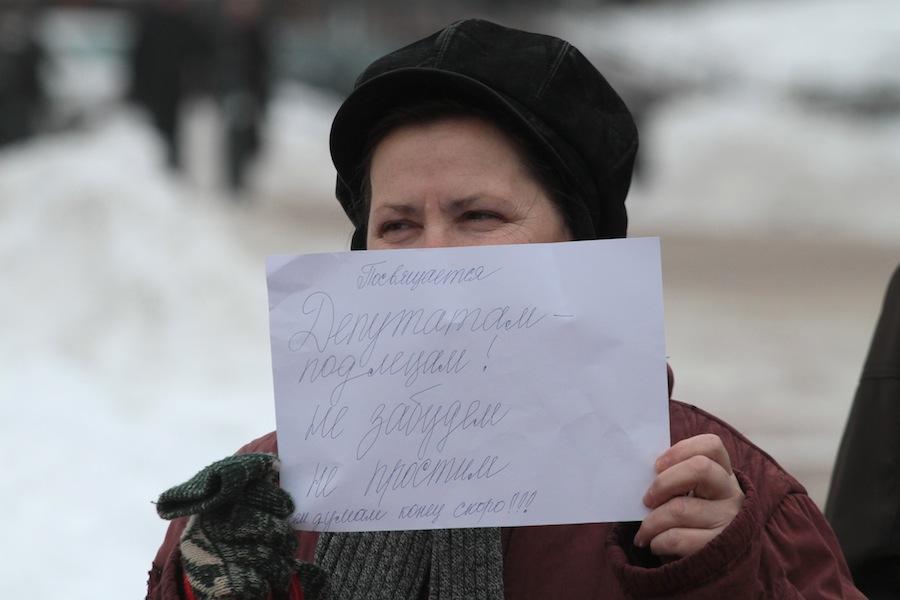 Посвящается
Депутатам -
подлецам!
не забудем
не простим
думам конец скоро!!!